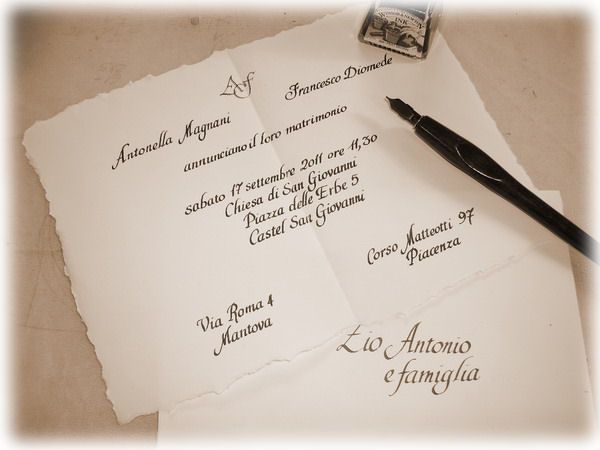 INK
A f
Antonella Magnani
Francesco Diomede
annunciano il loro matrimonio
sabato 17 settembre 2011 ore 11,30
Chiesa di San Giovanni
Piazza delle Erbe 5
Castel San Giovanni
Corso Matteotti 97
Piacenza
Via Roma 4
Mantova
Zio Antonio
e famiglia